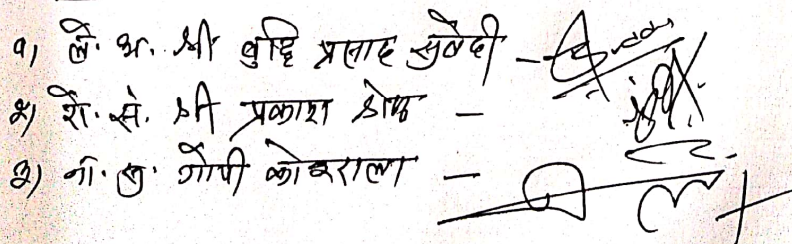 १) ले. अ. श्री बुद्धि प्रसाद सुवेदी -
२) शै. से. श्री प्रकाश श्रेष्ठ -
३) ना. सु. गोपी कोइराला -